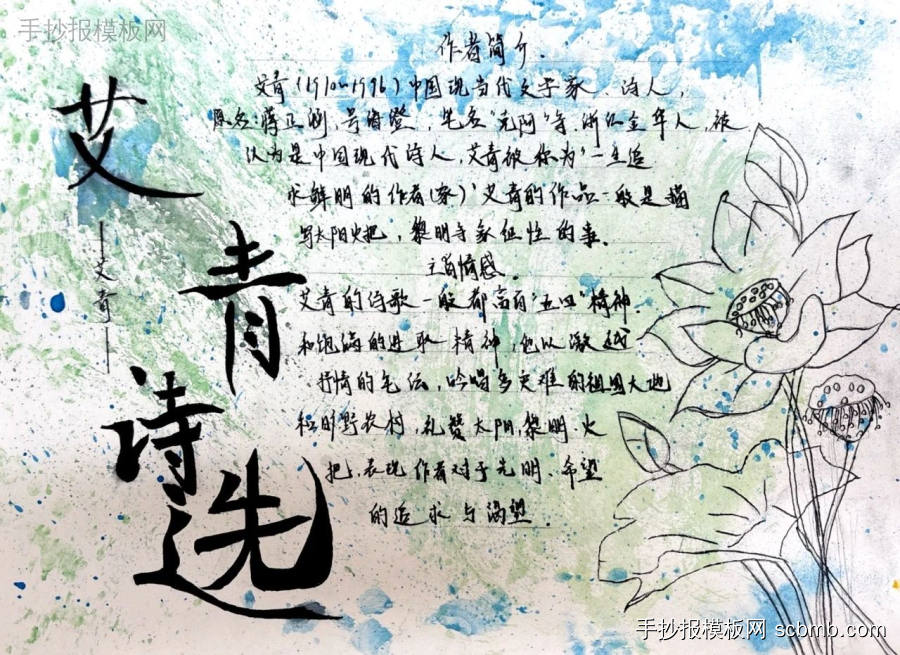 手抄报模板网
艾青诗选
—艾青—
作者简介.
艾青(1910~1996)中国现当代文学家、诗人,
原名:蒋正涵,号海澄,笔名"莪伽"等.浙江金华人,被
认为是中国现代诗人,艾青被称为'一生追
求鲜明的作者(家)'艾青的作品一般是描
写太阳火把,黎明等象征性的事。
主旨情感。
艾青的诗歌一般都富有"五四"精神.
和饱满的进取精神,他以激越
抒情的笔法,吟唱多灾难的祖国大地
和旷野农村,礼赞太阳,黎明.火
把,表现作者对于光明、希望
的追求与渴望.
手抄报模板网 scbmb.com